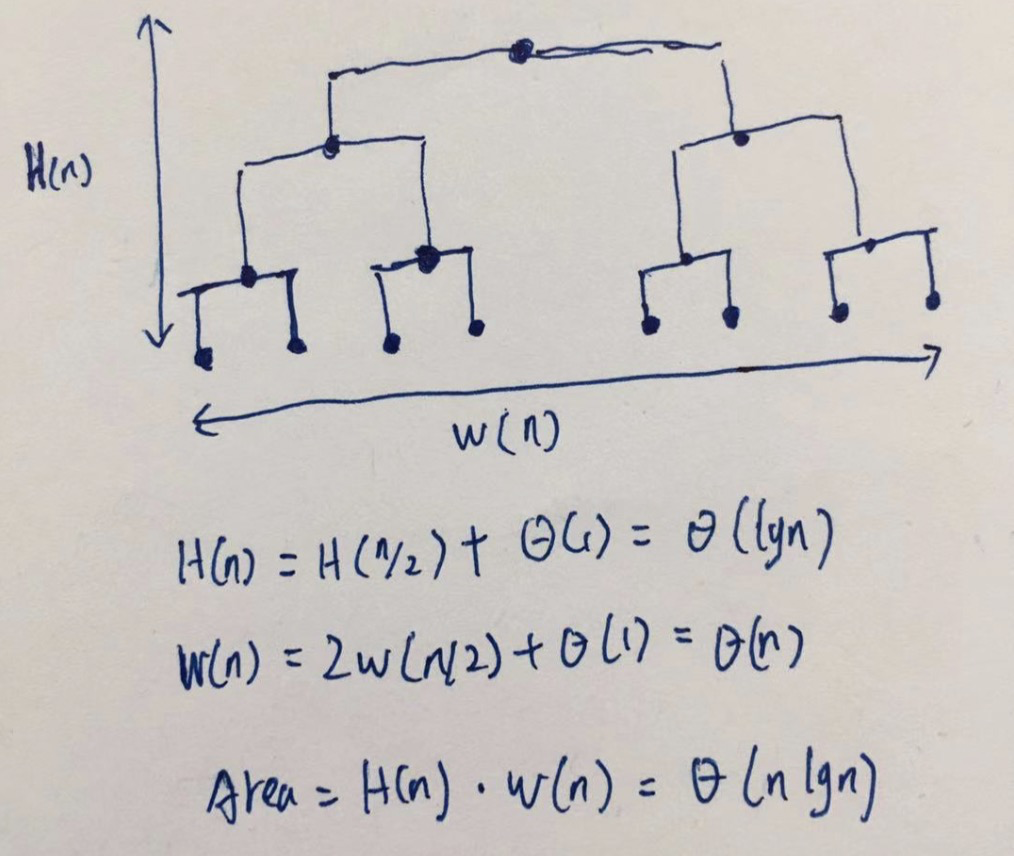 H(n)
W(n)
H(n) = H(n/2) + Θ(1) = Θ(lgn)
W(n) = 2W(n/2) + Θ(1) = Θ(n)
Area = H(n) · W(n) = Θ(n lgn)